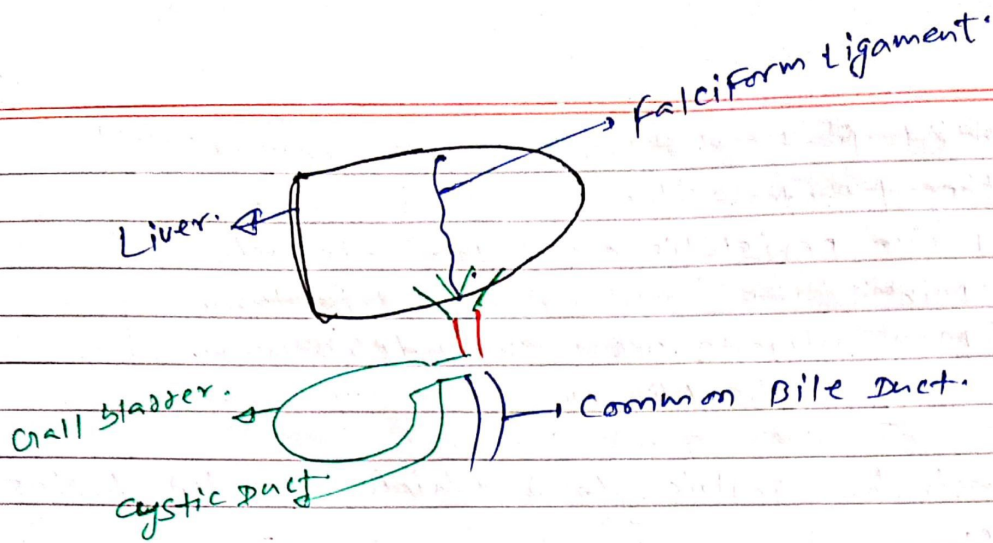 Falciform Ligament.
Liver.
Gall bladder.
Common Bile Duct.
Cystic Duct